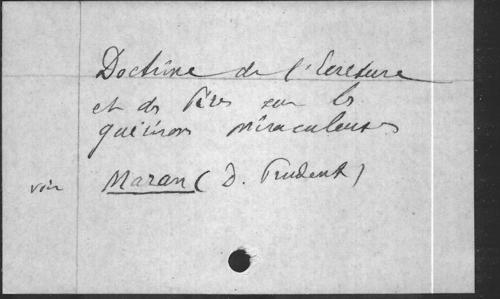 Doctrine de l'Ecriture
et des Pères sur les
guérisons miraculeuses
voir Maran (D. Prudent)